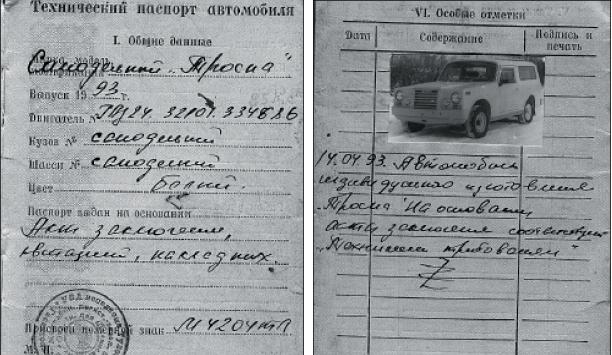 Технический паспорт автомобиля
I. Общие данные
Самодельный "Тросна"
Выпуск 1993 г.
Двигатель №
Кузов № самодельный
Шасси № самодельный
Цвет белый.
Паспорт выдан на основании
Акт заключения,
квитанций, накладных.
Присвоен номерной знак
М. П.
VI. Особые отметки
Дата Содержание Подпись и
печать
14.04.93. Автомобиль
индивидуально изготовления
"Тросна" на основании
акта заключения соответствует
"Технически требованиям"